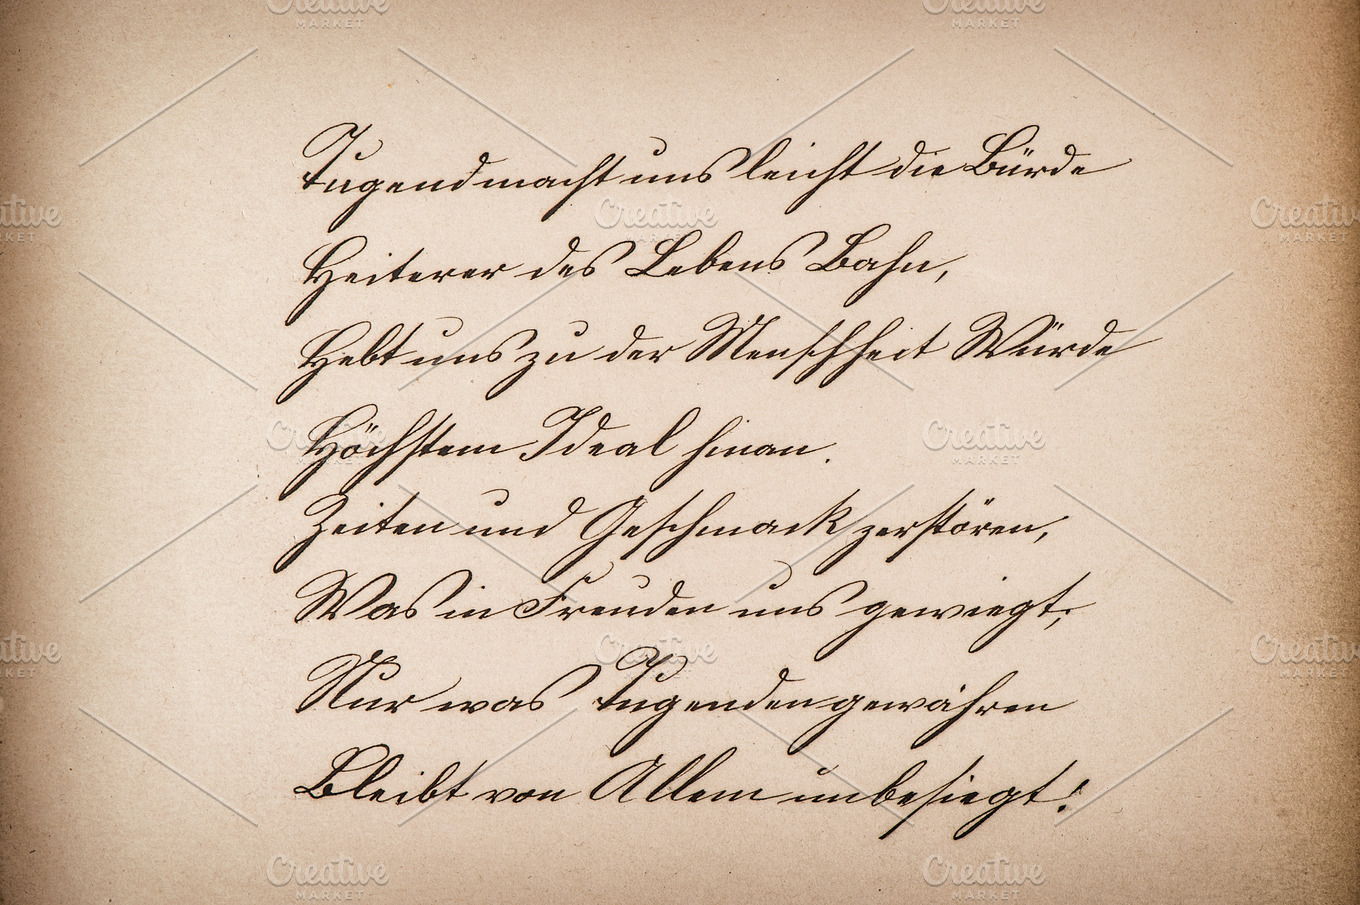 Tugend macht uns leicht die Bürde
Heiterer des Lebens Bahn,
Hebt uns zu der Menschheit Würde
Höchstem Ideal hinan.
Zeiten und Geschmack zerstören,
Was in Freuden uns gewiegt;
Nur was Tugenden gewähren
Bleibt von Allem unbesiegt!
Creative
MARKET